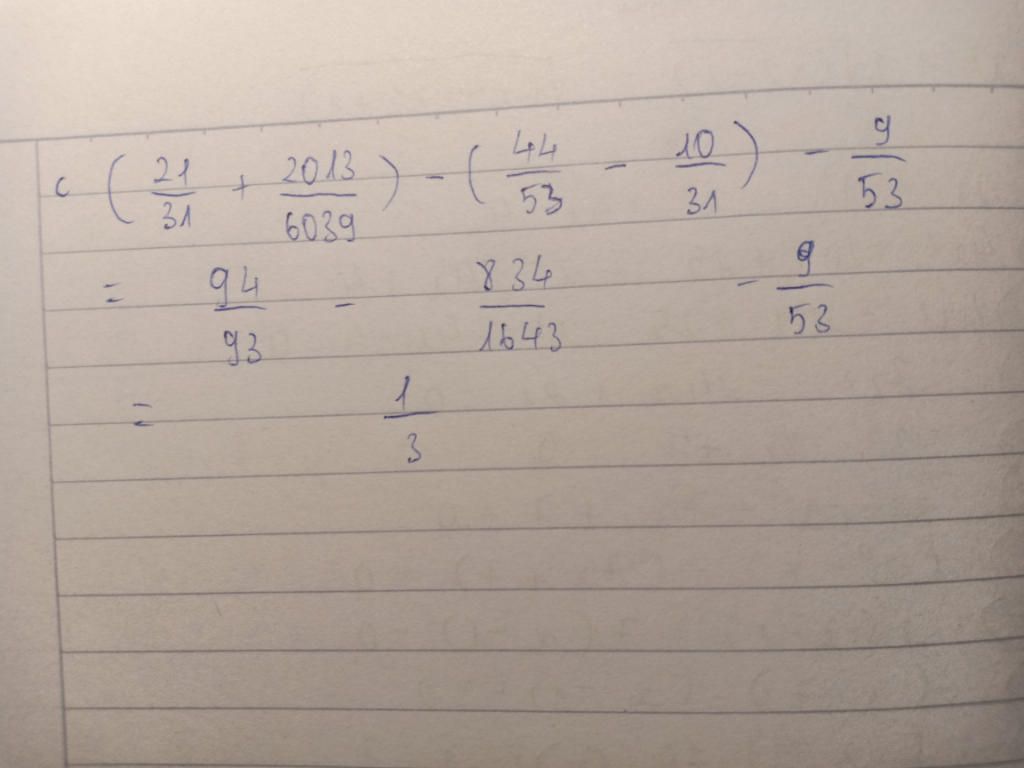 c ( 21/31 + 2013/6039 ) - ( 44/53 - 10/31 ) - 9/53
= 94/93 - 834/1643 - 9/53
= 1/3